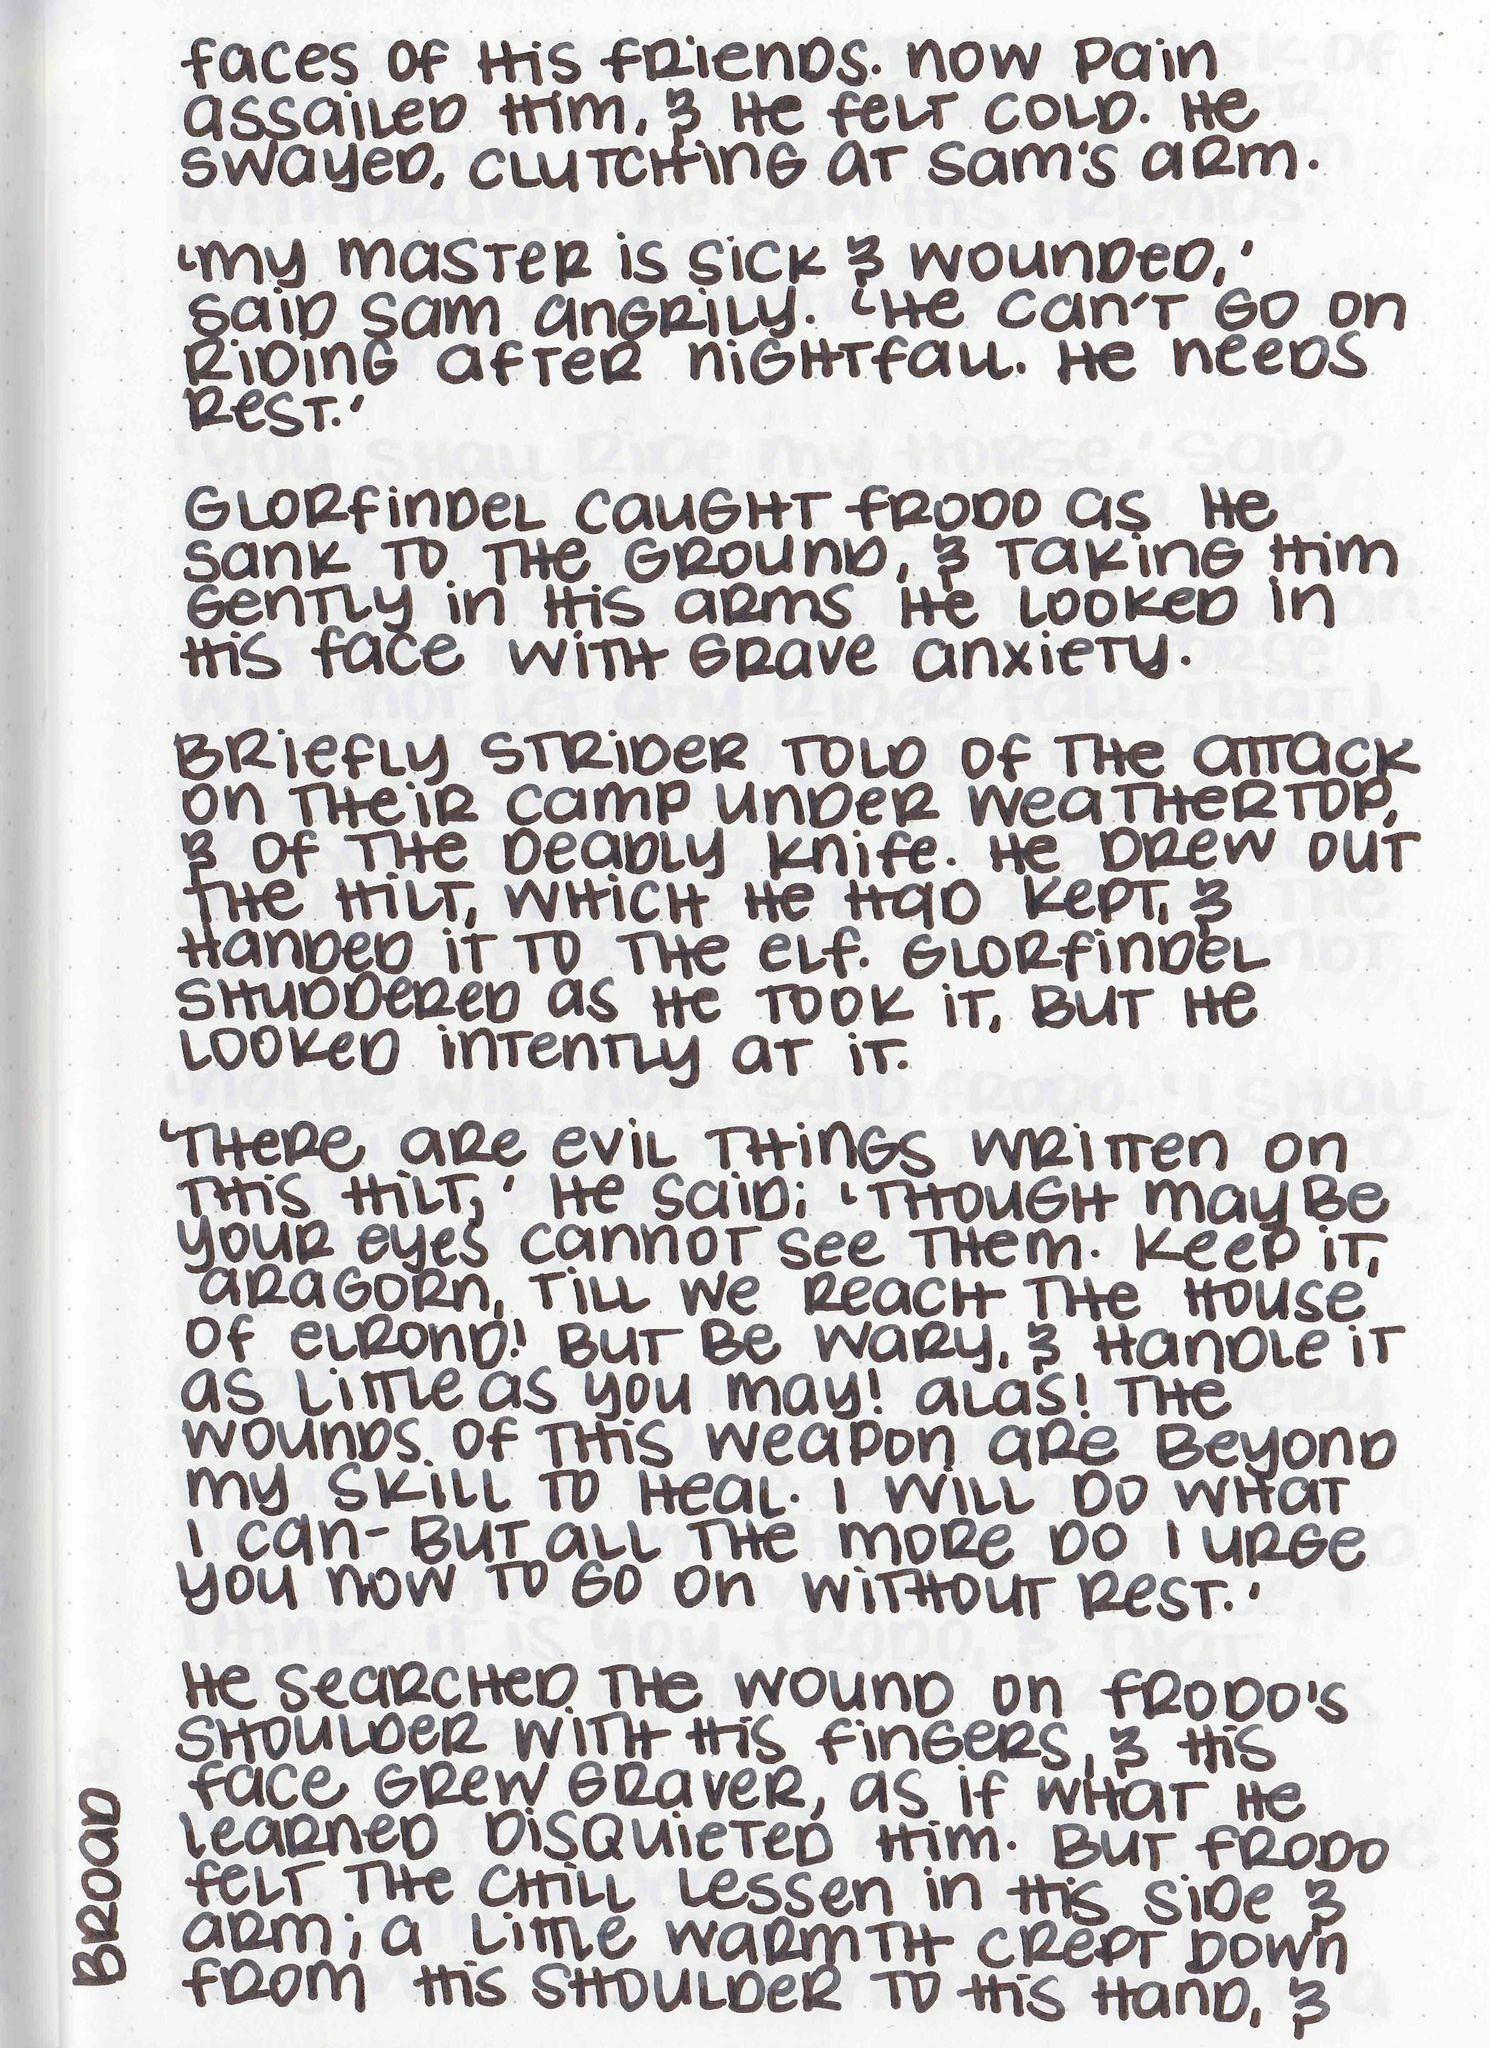 faces of His friends. Now pain
assailed Him, & He felt cold. He
swayed, clutching at Sam's arm.
'My master is sick & wounded,'
said Sam angrily. 'He can't go on
riding after nightfall. He needs
rest.'
Glorfindel caught Frodo as He
sank to the ground, & taking Him
gently in His arms He looked in
His face with grave anxiety.
Briefly Strider told of the attack
on their camp under Weathertop,
& of the deadly knife. He drew out
the Hilt, which He Had kept, &
Handed it to the elf. Glorfindel
shuddered as He took it, but He
looked intently at it.
'There are evil things written on
this Hilt,' He said; 'though maybe
your eyes cannot see them. Keep it,
Aragorn, till we reach the House
of Elrond! But be wary, & Handle it
as little as you may! Alas! The
wounds of this weapon are beyond
my skill to Heal. I will do what
I can - but all the more do I urge
you now to go on without rest.'
He searched the wound on Frodo's
shoulder with His fingers, & His
face grew graver, as if what He
learned disquieted Him. But Frodo
felt the chill lessen in His side &
arm; a little warmth crept down
from His shoulder to His Hand, &
Broad